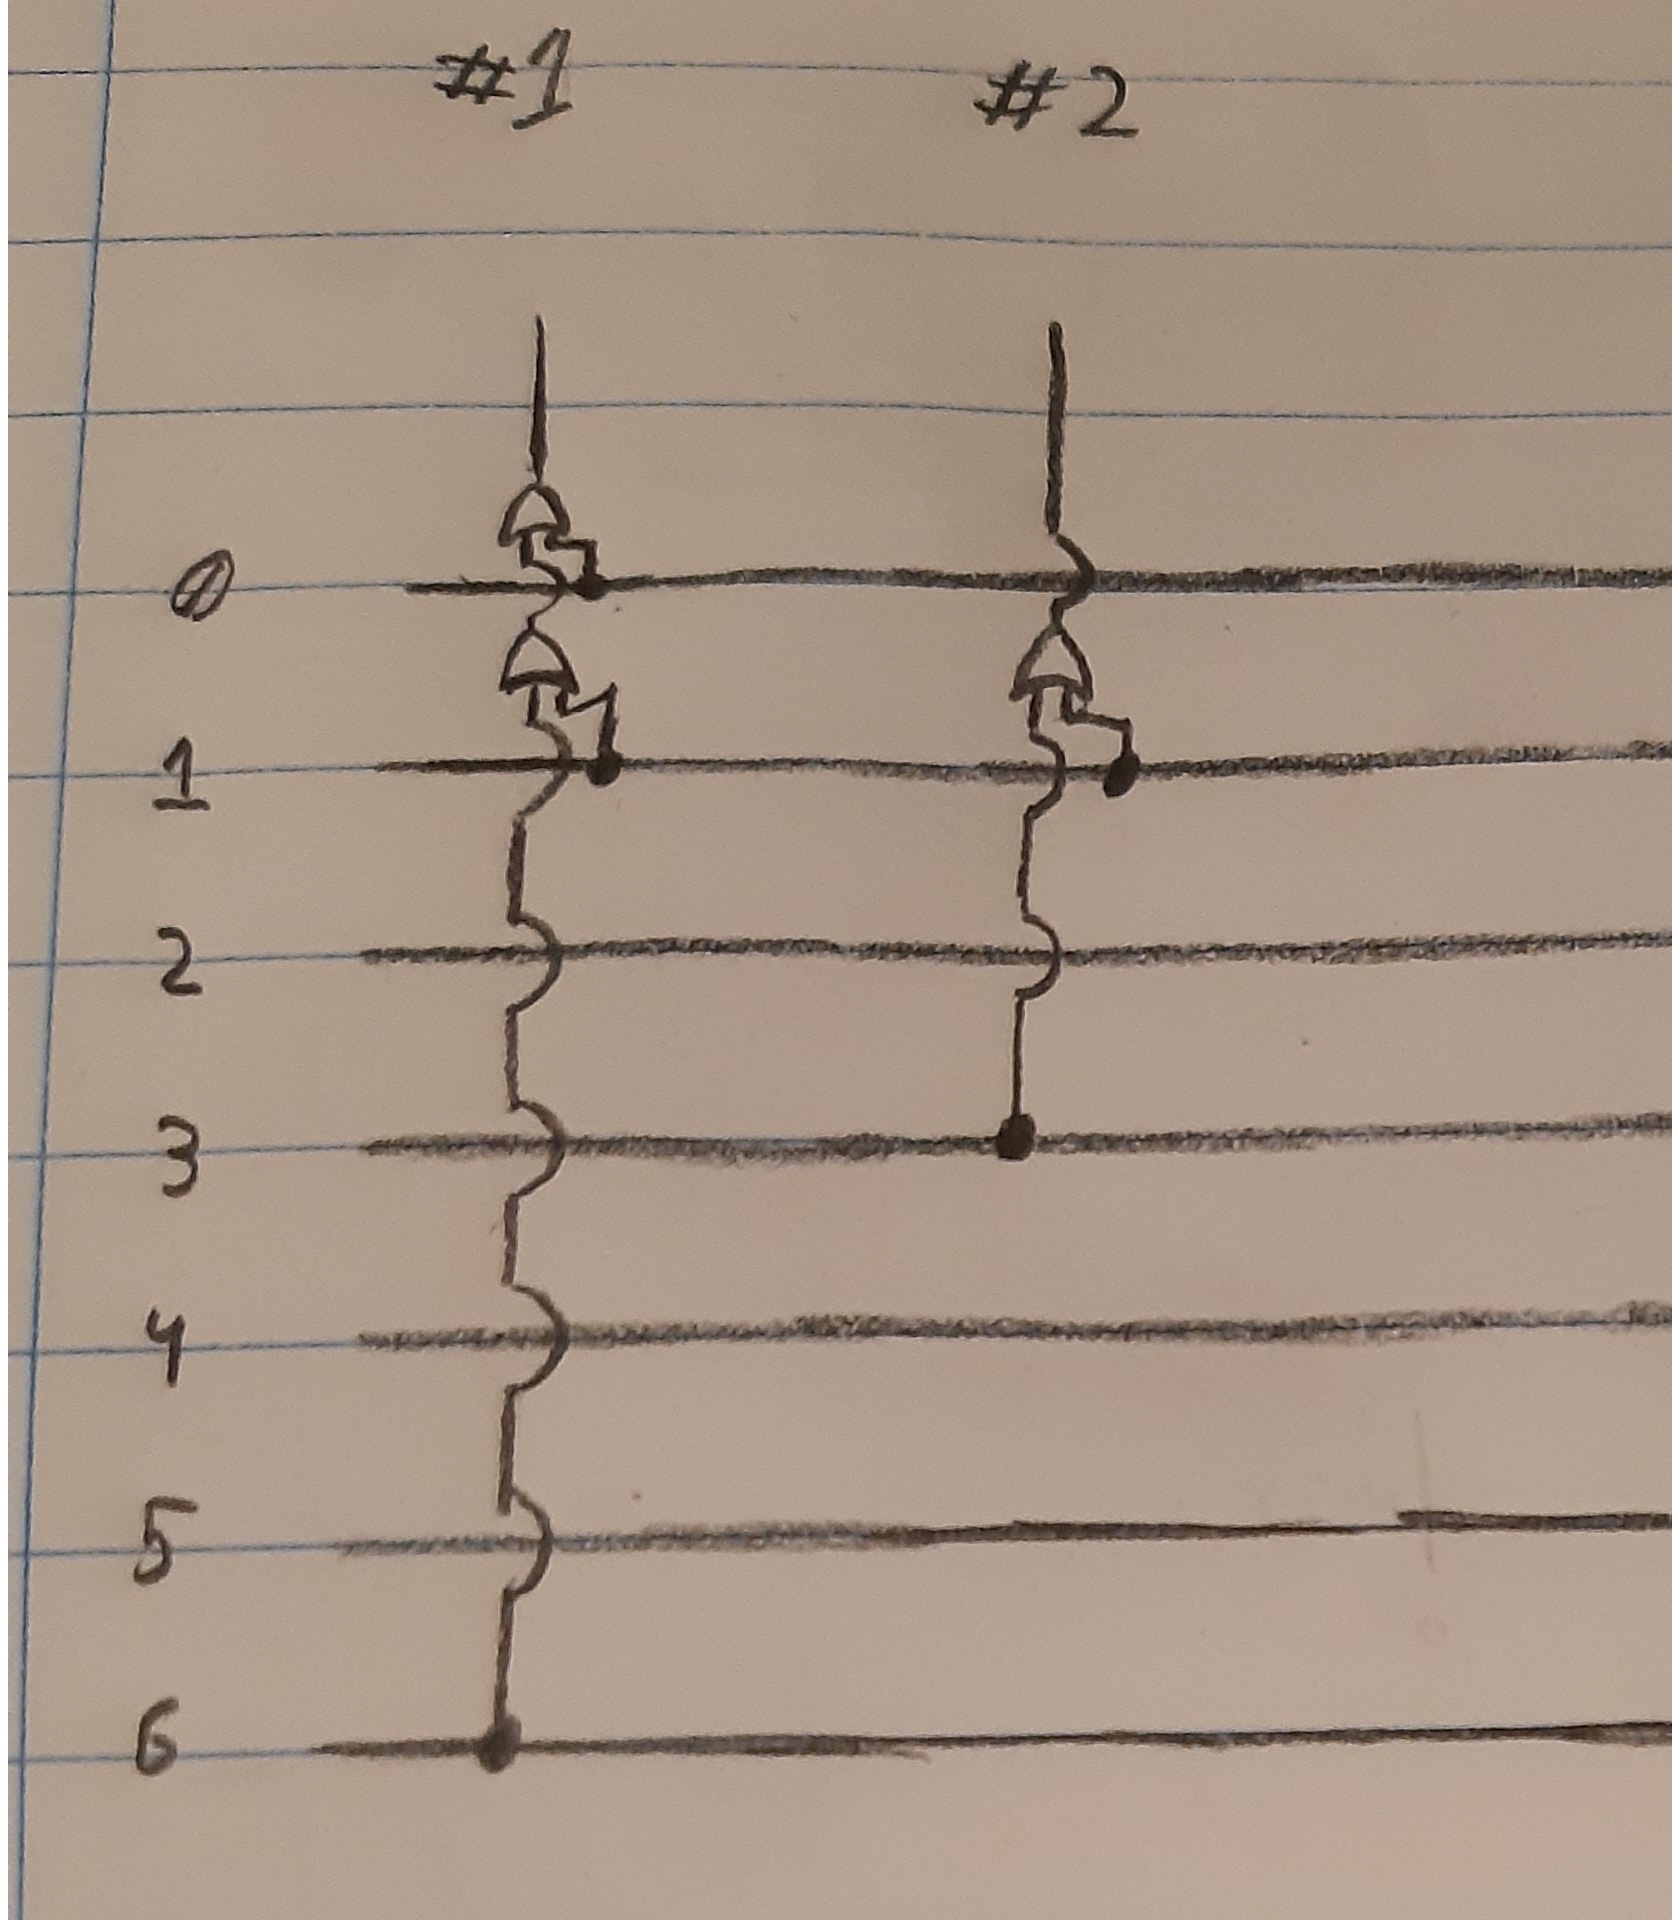 #1 #2
0
1
2
3
4
5
6